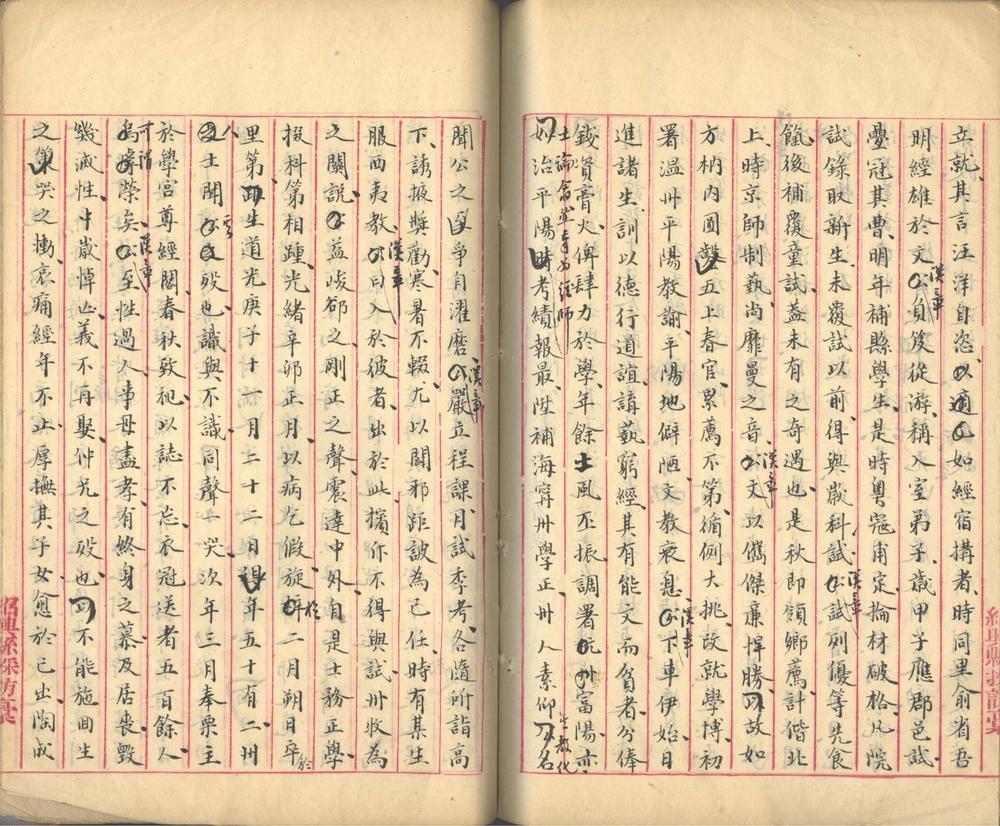 立就其言汪洋自恣以適公如經宿搆者時同里俞省吾
明經雄於文漢章公負笈從游稱入室弟子歲甲子應郡邑試
壘冠其曹明年補縣學生是時粵寇甫定掄材破格凡院
試錄取新生未覆試以前得與歲科試漢章公試列優等先食
餼後補覆童試蓋未有之奇遇也是秋即領鄉薦計偕北
上時京師制藝尚靡曼之音漢章公文以儁傑廉悍勝故如
方枘內圓鑿五上春官累薦不第循例大挑改就學博初
署溫州平陽教諭平陽地僻陋文教衰息漢章公下車伊始日
進諸生訓以德行道誼講藝窮經其有能文而貧者分俸
錢資膏火俾肆力於學年餘士風丕振調署杭州富陽亦
士論翕然奉為經師
如治平陽時考績報最陞補海甯州學正州人素仰其教化名
聞公之爭自濯磨漢章公嚴立程課月試季考各隨所詣高
下誘掖獎勸寒暑不輟尤以闢邪距詖為己任時有某生
服西夷教漢章公曰入於彼者出於此擯斥不得與試州收為
之關說公益峻郤之剛正之聲震達中外自是士務正學
掇科第相踵光緒辛卯正月以病乞假旋於二月朔日卒於
里第生道光庚子十一月二十二日得年五十有二州
人士聞公之歿也識與不識同聲一哭次年三月奉栗主
於學宮尊經閣春秋致祀以誌不忘衣冠送者五百餘人
可謂榮矣漢章公至性過人事母盡孝有終身之慕及居喪毀
幾滅性中歲悼亡義不再娶仲兄之歿也不能施面生
之第哭之慟哀痛經年不止厚撫其子女愈於己出陶成
紹興縣採訪稾